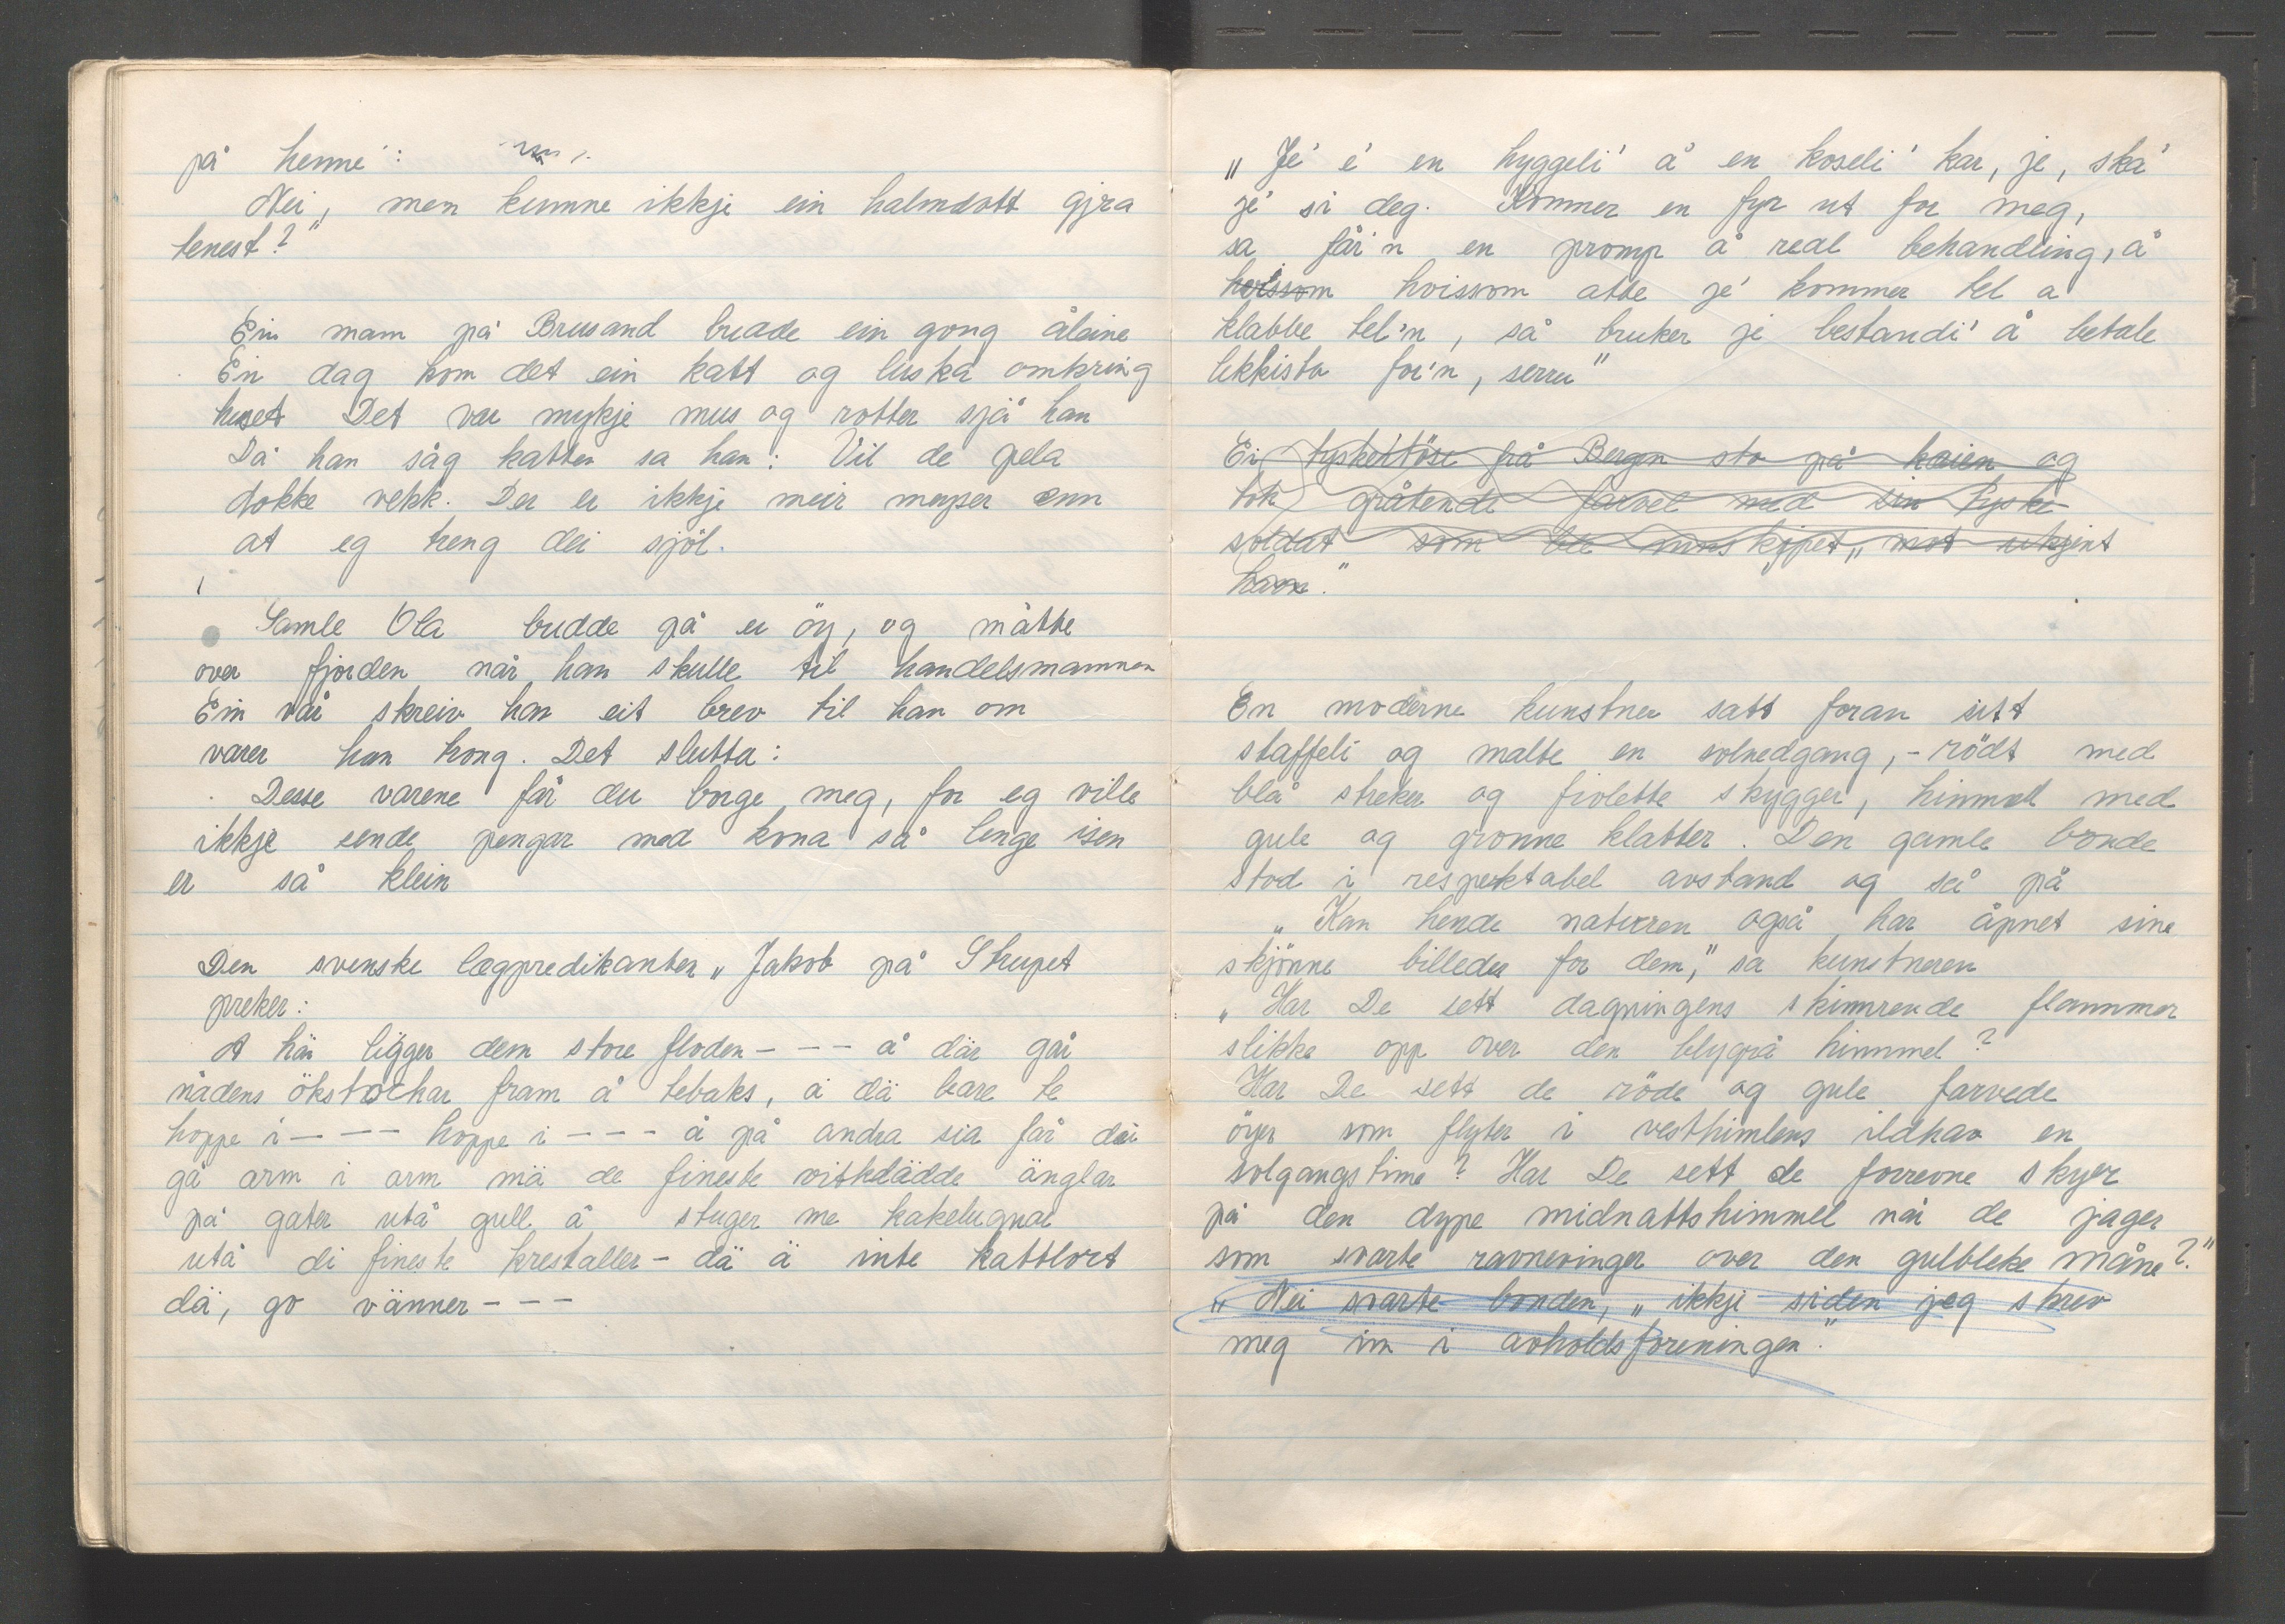 på henne:
Nei, men kunne ikkje ein halmdott gjra
tenest?"
Ein mann på Brusand budde ein gong åleine
Ein dag kom det ein katt og luska omkring
huset Det var mykje mus og rotter sjå han
Då han såg katten sa han: Vil de pela
dokke vekk. Der er ikkje meir myser enn
at eg treng dei sjöl.
Gamle Ola budde på ei öy, og måtte
over fjorden når han skulle til handelsmannen
Ein vår skreiv han eit brev til han om
varer han trong. Det slutta:
Desse varene får du borge meg, for eg ville
ikkje sende pengar med kona så lenge isen
er så klein
Den svenske lægpredikanten „Jakob på Strupet
preker:
Å här ligger dem store floden - - - å där går
nådens ökstockar fram å tebaks, å dä bare te
hoppe i - - - hoppe i - - - å på andra sia får dei
gå arm i arm mä de fineste vitklädde änglar
på gater utå gull å stuger me kakelugnar
utå di fineste krestaller - dä ä inte kattlort
dä, go vänner - - -
„Je' e' en hyggeli' å en koseli' kar, je, ska'
je' si deg. Kommer en fyr ut for meg,
sa får'n en promp å real behandling, å
hvissom hvissom atte je' kommer tel a
klabbe tel'n, så bruker je bestandi' å betale
likkista for'n, serru"
Ei tyskettöse frå Bergen sto på kaien og
tok gråtende farvel med sin tyske
soldat som ble innskipet „mot ukjent
havn."
En moderne kunstner satt foran sitt
staffeli og malte en solnedgang, - rödt med
blå streker og fiolette skygger, himmel med
gule og gronne klatter. Den gamle bonde
stod i respektabel avstand og så på
„Kan hende naturen også har åpnet sine
skjönne billeder for dem," sa kunstneren
„Har De sett dagningens skimrende flammer
slikke opp over den blygrå himmel?
Har De sett de röde og gule farvede
öyer som flyter i vesthimlens ildhav en
solgangstime? Har De sett de forrevne skyer
på den dype midnattshimmel når de jager
som svarte ravnevinger over den gulbleke måne?"
„Nei svarte bonden, „ikkje siden jeg skrev
meg inn i avholdsforeningen."